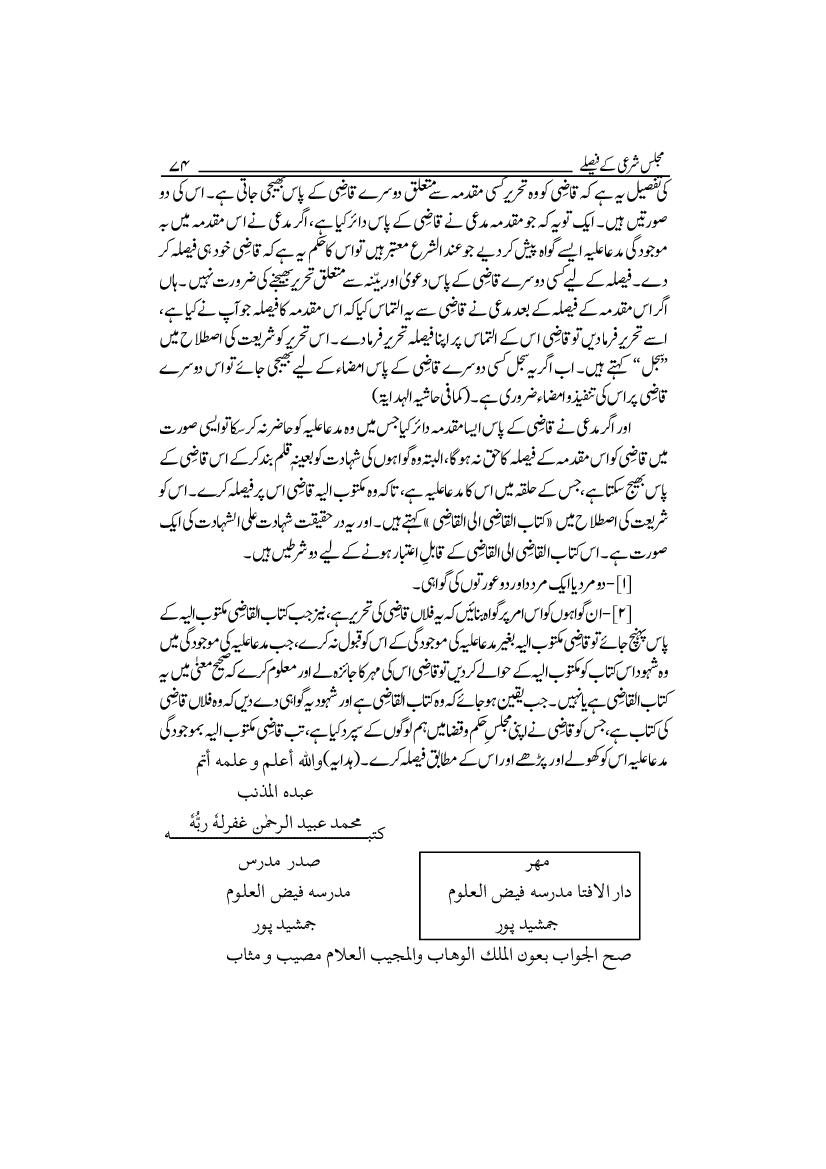 مجلس شرعی کے فیصلے ۷۴
کی تفصیل یہ ہے کہ قاضی کو وہ تحریر کسی مقدمہ سے متعلق دوسرے قاضی کے پاس بھیجی جاتی ہے۔ اس کی دو
صورتیں ہیں۔ ایک تو یہ کہ جو مقدمہ مدعی نے قاضی کے پاس دائر کیا ہے، اگر مدعی نے اس مقدمہ میں بہ
موجودگی مدعا علیہ ایسے گواہ پیش کر دیے جو عند الشرع معتبر ہیں تو اس کا حکم یہ ہے کہ قاضی خود ہی فیصلہ کر
دے۔ فیصلہ کے لیے کسی دوسرے قاضی کے پاس دعویٰ اور بیّنہ سے متعلق تحریر بھیجنے کی ضرورت نہیں۔ ہاں
اگر اس مقدمہ کے فیصلہ کے بعد مدعی نے قاضی سے یہ التماس کیا کہ اس مقدمہ کا فیصلہ جو آپ نے کیا ہے،
اسے تحریر فرما دیں تو قاضی اس کے التماس پر اپنا فیصلہ تحریر فرما دے۔ اس تحریر کو شریعت کی اصطلاح میں
”سجل“ کہتے ہیں۔ اب اگر یہ سجل کسی دوسرے قاضی کے پاس امضاء کے لیے بھیجی جائے تو اس دوسرے
قاضی پر اس کی تنفیذ و امضاء ضروری ہے۔ (کما فی حاشیہ الہدایۃ)
اور اگر مدعی نے قاضی کے پاس ایسا مقدمہ دائر کیا جس میں وہ مدعا علیہ کو حاضر نہ کر سکا تو ایسی صورت
میں قاضی کو اس مقدمہ کے فیصلہ کا حق نہ ہو گا، البتہ وہ گواہوں کی شہادت کو بعینہٖ قلم بند کر کے اس قاضی کے
پاس بھیج سکتا ہے، جس کے حلقہ میں اس کا مدعا علیہ ہے، تاکہ وہ مکتوب الیہ قاضی اس پر فیصلہ کرے۔ اس کو
شریعت کی اصطلاح میں «کتاب القاضی الی القاضی» کہتے ہیں۔ اور یہ در حقیقت شہادت علی الشہادت کی ایک
صورت ہے۔ اس کتاب القاضی الی القاضی کے قابلِ اعتبار ہونے کے لیے دو شرطیں ہیں۔
[۱]– دو مرد یا ایک مرد اور دو عورتوں کی گواہی۔
[۲]– ان گواہوں کو اس امر پر گواہ بنائیں کہ یہ فلاں قاضی کی تحریر ہے، نیز جب کتاب القاضی مکتوب الیہ کے
پاس پہنچ جائے تو قاضی مکتوب الیہ بغیر مدعا علیہ کی موجودگی کے اس کو قبول نہ کرے، جب مدعا علیہ کی موجودگی میں
وہ شہود اس کتاب کو مکتوب الیہ کے حوالے کر دیں تو قاضی اس کی مہر کا جائزہ لے اور معلوم کرے کہ صحیح معنیٰ میں یہ
کتاب القاضی ہے یا نہیں۔ جب یقین ہو جائے کہ وہ کتاب القاضی ہے اور شہود یہ گواہی دے دیں کہ وہ فلاں قاضی
کی کتاب ہے، جس کو قاضی نے اپنی مجلسِ حکم و قضا میں ہم لوگوں کے سپرد کیا ہے، تب قاضی مکتوب الیہ بموجودگی
مدعا علیہ اس کو کھولے اور پڑھے اور اس کے مطابق فیصلہ کرے۔ (ہدایہ) والله أعلم و علمه أتم
عبدہ المذنب
محمد عبید الرحمٰن غفرلہٗ ربُّہٗ
کتبــــه
مهر
دار الافتا مدرسه فيض العلوم
جمشيد پور
صدر مدرس
مدرسه فيض العلوم
جمشيد پور
صح الجواب بعون الملك الوهاب والمجيب العلام مصيب و مثاب